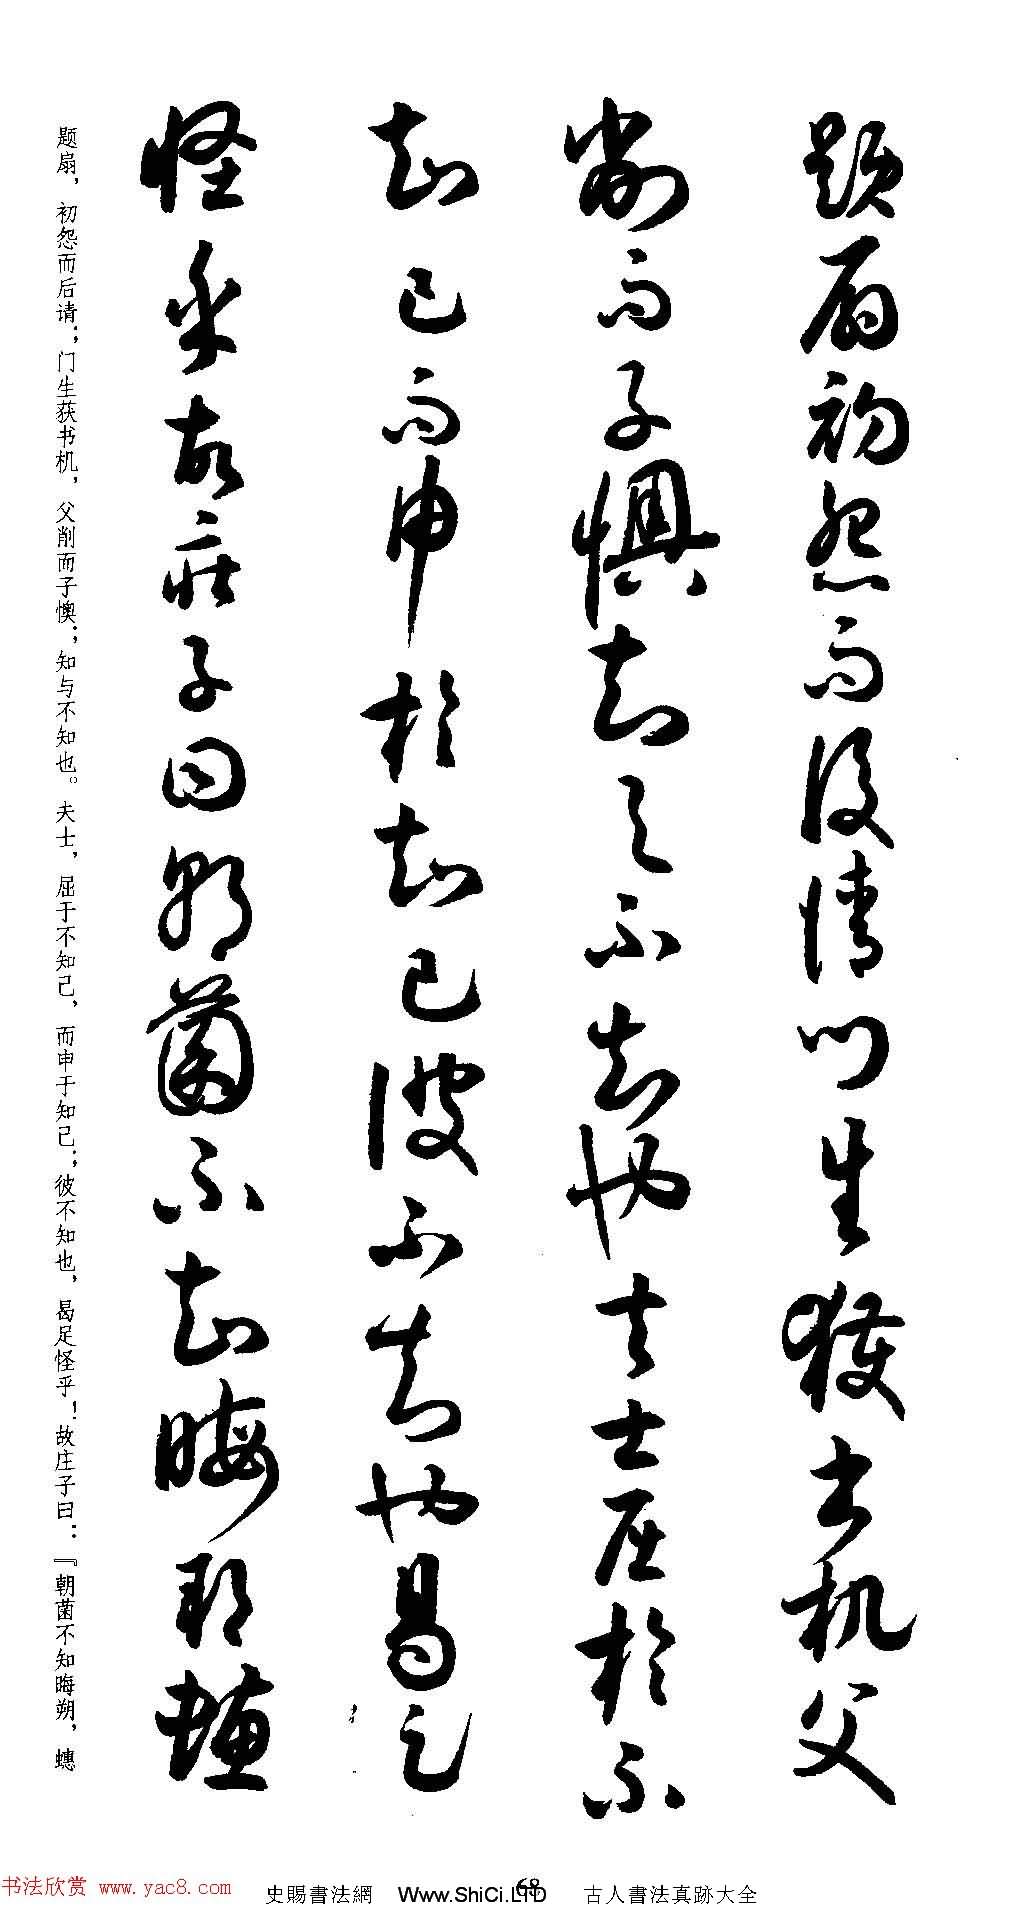 題扇初怨而後請門生獲書机父
削而子懊知與不知也夫士屈於不
知己而申於知己彼不知也曷足
怪乎故莊子曰朝菌不知晦朔蟪
题扇，初怨而后请；门生获书机，父削而子懊；知与不知也。夫士，屈于不知己，而申于知己；彼不知也，曷足怪乎！故庄子曰：『朝菌不知晦朔，蟪
68
书法欣赏 www.yac8.com
史賜書法網 Www.ShiCi.LTD 古人書法真跡大全